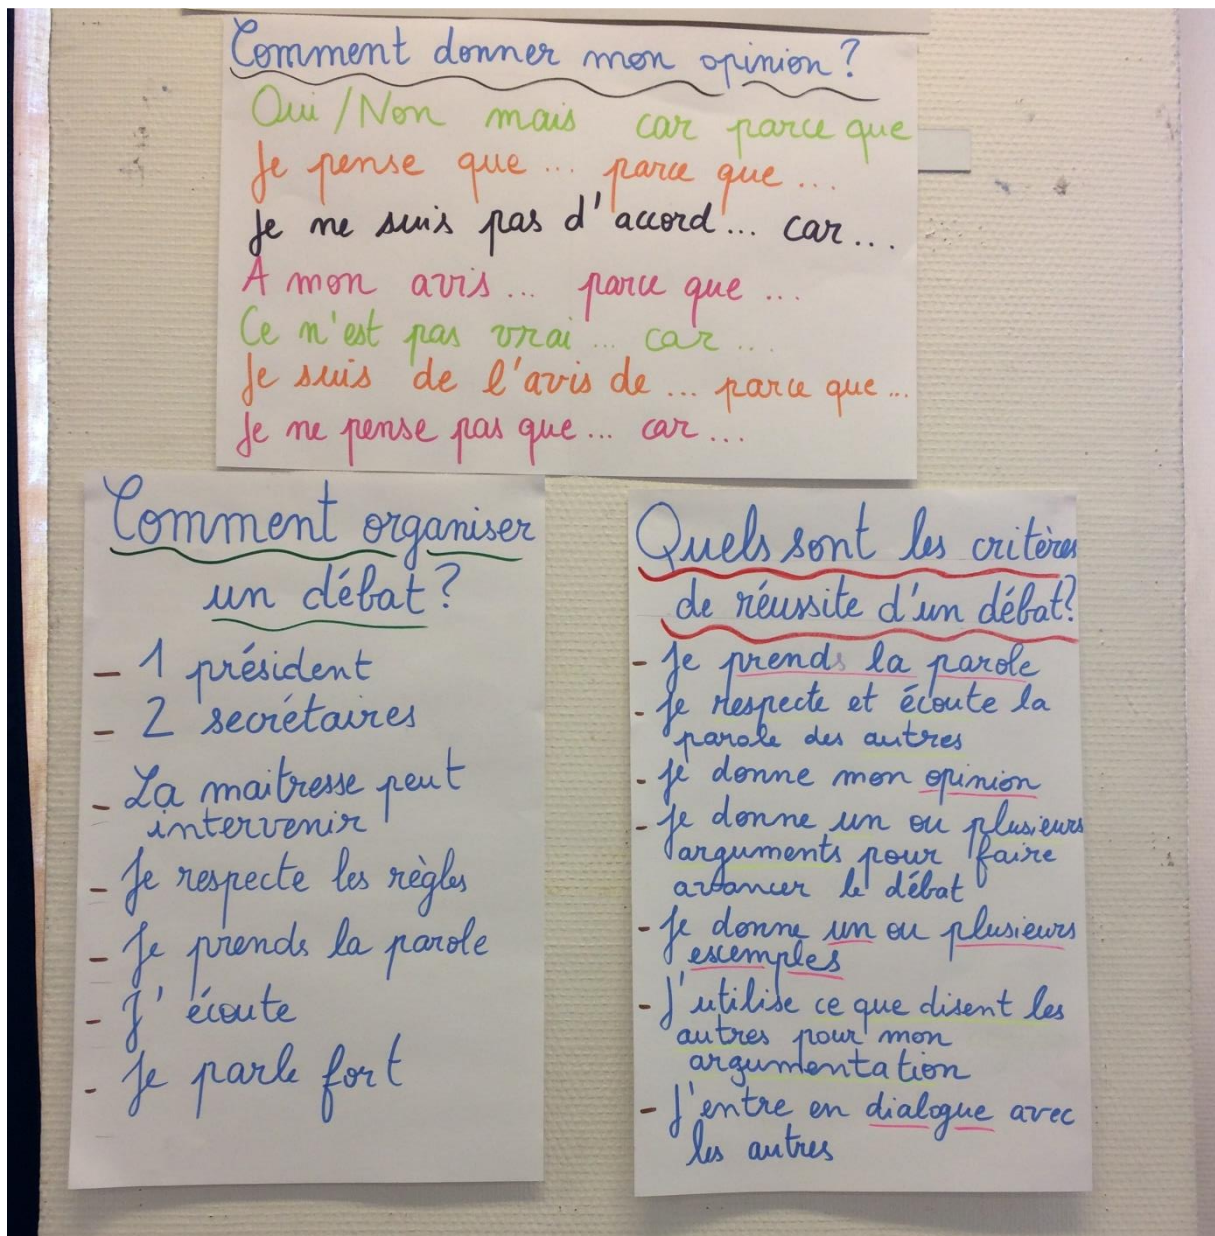 Comment donner mon opinion ?
Oui / Non mais car parce que
Je pense que ... parce que ...
Je ne suis pas d'accord ... car ...
A mon avis ... parce que ...
Ce n'est pas vrai ... car ...
Je suis de l'avis de ... parce que ...
Je ne pense pas que ... car ...
Comment organiser
un débat ?
- 1 président
- 2 secrétaires
- La maitresse peut
intervenir
- Je respecte les règles
- Je prends la parole
- J'écoute
- Je parle fort
Quels sont les critères
de réussite d'un débat ?
- Je prends la parole
- Je respecte et écoute la
parole des autres
- Je donne mon opinion
- Je donne un ou plusieurs
arguments pour faire
avancer le débat
- Je donne un ou plusieurs
exemples
- J'utilise ce que disent les
autres pour mon
argumentation
- J'entre en dialogue avec
les autres